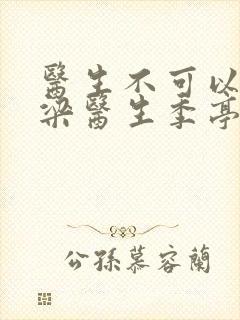 醫生不可以
梁醫生季亭
公孫慕容蘭